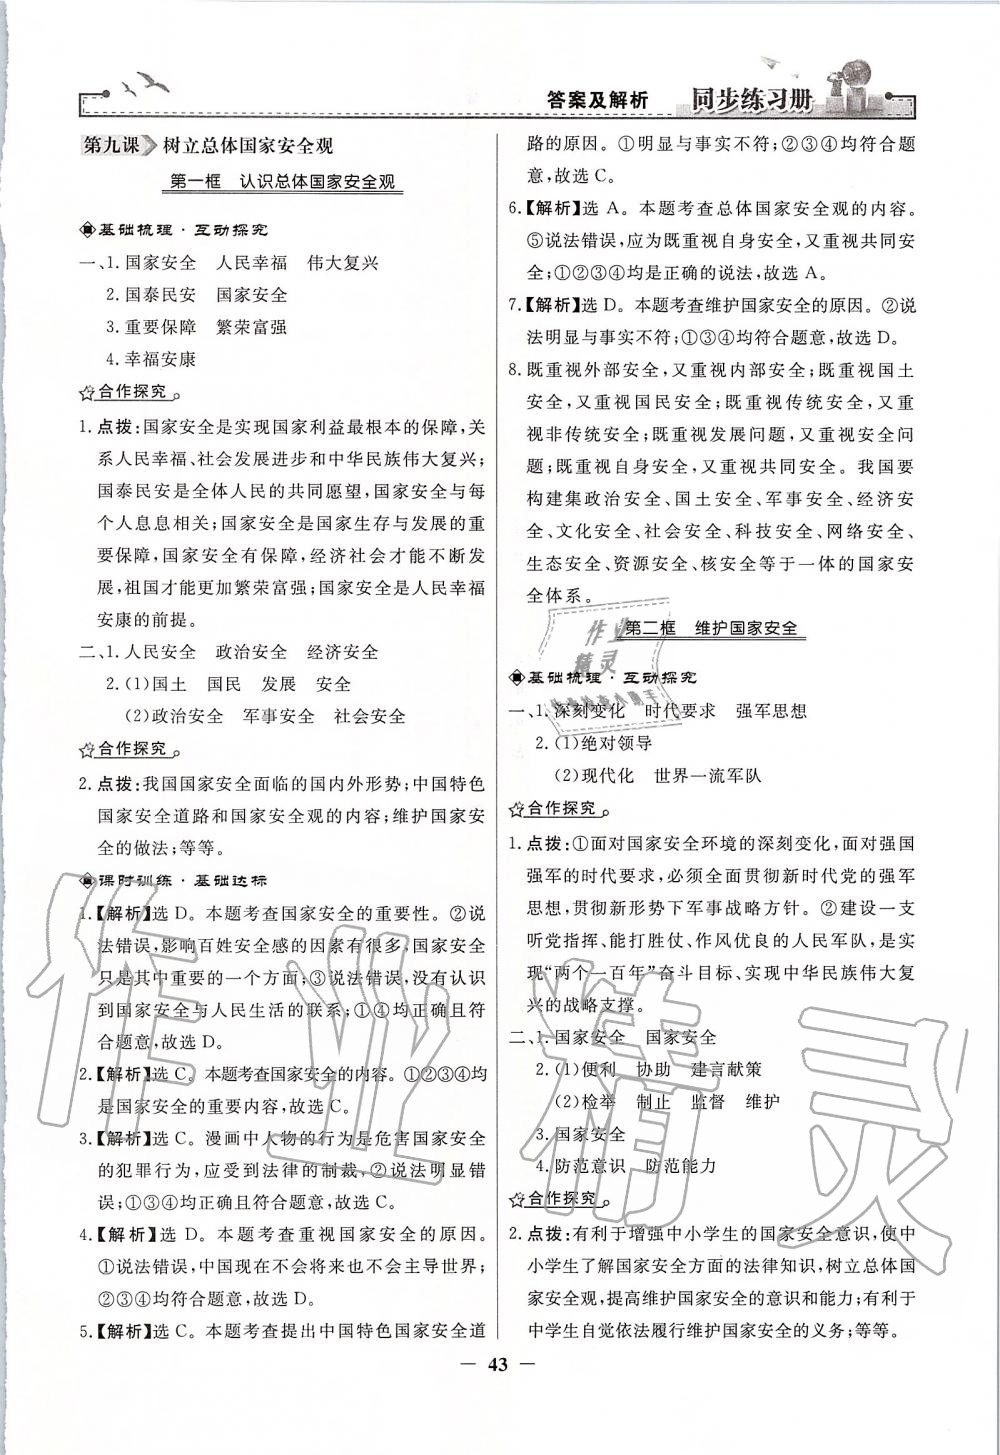 答案及解析 同步练习册
第九课 树立总体国家安全观
第一框 认识总体国家安全观
基础梳理·互动探究
一、1.国家安全 人民幸福 伟大复兴
2.国泰民安 国家安全
3.重要保障 繁荣富强
4.幸福安康
合作探究
1.点拨:国家安全是实现国家利益最根本的保障,关
系人民幸福、社会发展进步和中华民族伟大复兴;
国泰民安是全体人民的共同愿望,国家安全与每
个人息息相关;国家安全是国家生存与发展的重
要保障,国家安全有保障,经济社会才能不断发
展,祖国才能更加繁荣富强;国家安全是人民幸福
安康的前提。
二、1.人民安全 政治安全 经济安全
2.(1)国土 国民 发展 安全
(2)政治安全 军事安全 社会安全
合作探究
2.点拨:我国国家安全面临的国内外形势;中国特色
国家安全道路和国家安全观的内容;维护国家安
全的做法;等等。
课时训练·基础达标
1.【解析】选 D。本题考查国家安全的重要性。②说
法错误,影响百姓安全感的因素有很多,国家安全
只是其中重要的一个方面;③说法错误,没有认识
到国家安全与人民生活的联系;①④均正确且符
合题意,故选 D。
2.【解析】选 C。本题考查国家安全的内容。①②③④均
是国家安全的重要内容,故选 C。
3.【解析】选 C。漫画中人物的行为是危害国家安全
的犯罪行为,应受到法律的制裁,②说法明显错
误;①③④均正确且符合题意,故选 C。
4.【解析】选 D。本题考查重视国家安全的原因。
①说法错误,中国现在不会将来也不会主导世界;
②③④均符合题意,故选 D。
5.【解析】选 C。本题考查提出中国特色国家安全道
路的原因。①说法明显与事实不符;②③④均符合题
意,故选 C。
6.【解析】选 A。本题考查总体国家安全观的内容。
⑤说法错误,应为既重视自身安全,又重视共同安
全;①②③④均是正确的说法,故选 A。
7.【解析】选 D。本题考查维护国家安全的原因。②说
法明显与事实不符;①③④均符合题意,故选 D。
8.既重视外部安全,又重视内部安全;既重视国土
安全,又重视国民安全;既重视传统安全,又重
视非传统安全;既重视发展问题,又重视安全问
题;既重视自身安全,又重视共同安全。我国要
构建集政治安全、国土安全、军事安全、经济安
全、文化安全、社会安全、科技安全、网络安全、
生态安全、资源安全、核安全等于一体的国家安
全体系。
第二框 维护国家安全
基础梳理·互动探究
一、1.深刻变化 时代要求 强军思想
2.(1)绝对领导
(2)现代化 世界一流军队
合作探究
1.点拨:①面对国家安全环境的深刻变化,面对强国
强军的时代要求,必须全面贯彻新时代党的强军
思想,贯彻新形势下军事战略方针。②建设一支
听党指挥、能打胜仗、作风优良的人民军队,是实
现“两个一百年”奋斗目标、实现中华民族伟大复
兴的战略支撑。
二、1.国家安全 国家安全
2.(1)便利 协助 建言献策
(2)检举 制止 监督 维护
3.国家安全
4.防范意识 防范能力
合作探究
2.点拨:有利于增强中小学生的国家安全意识,使中
小学生了解国家安全方面的法律知识,树立总体国
家安全观,提高维护国家安全的意识和能力;有利于
中学生自觉依法履行维护国家安全的义务;等等。
— 43 —
作业精灵
作业
精灵